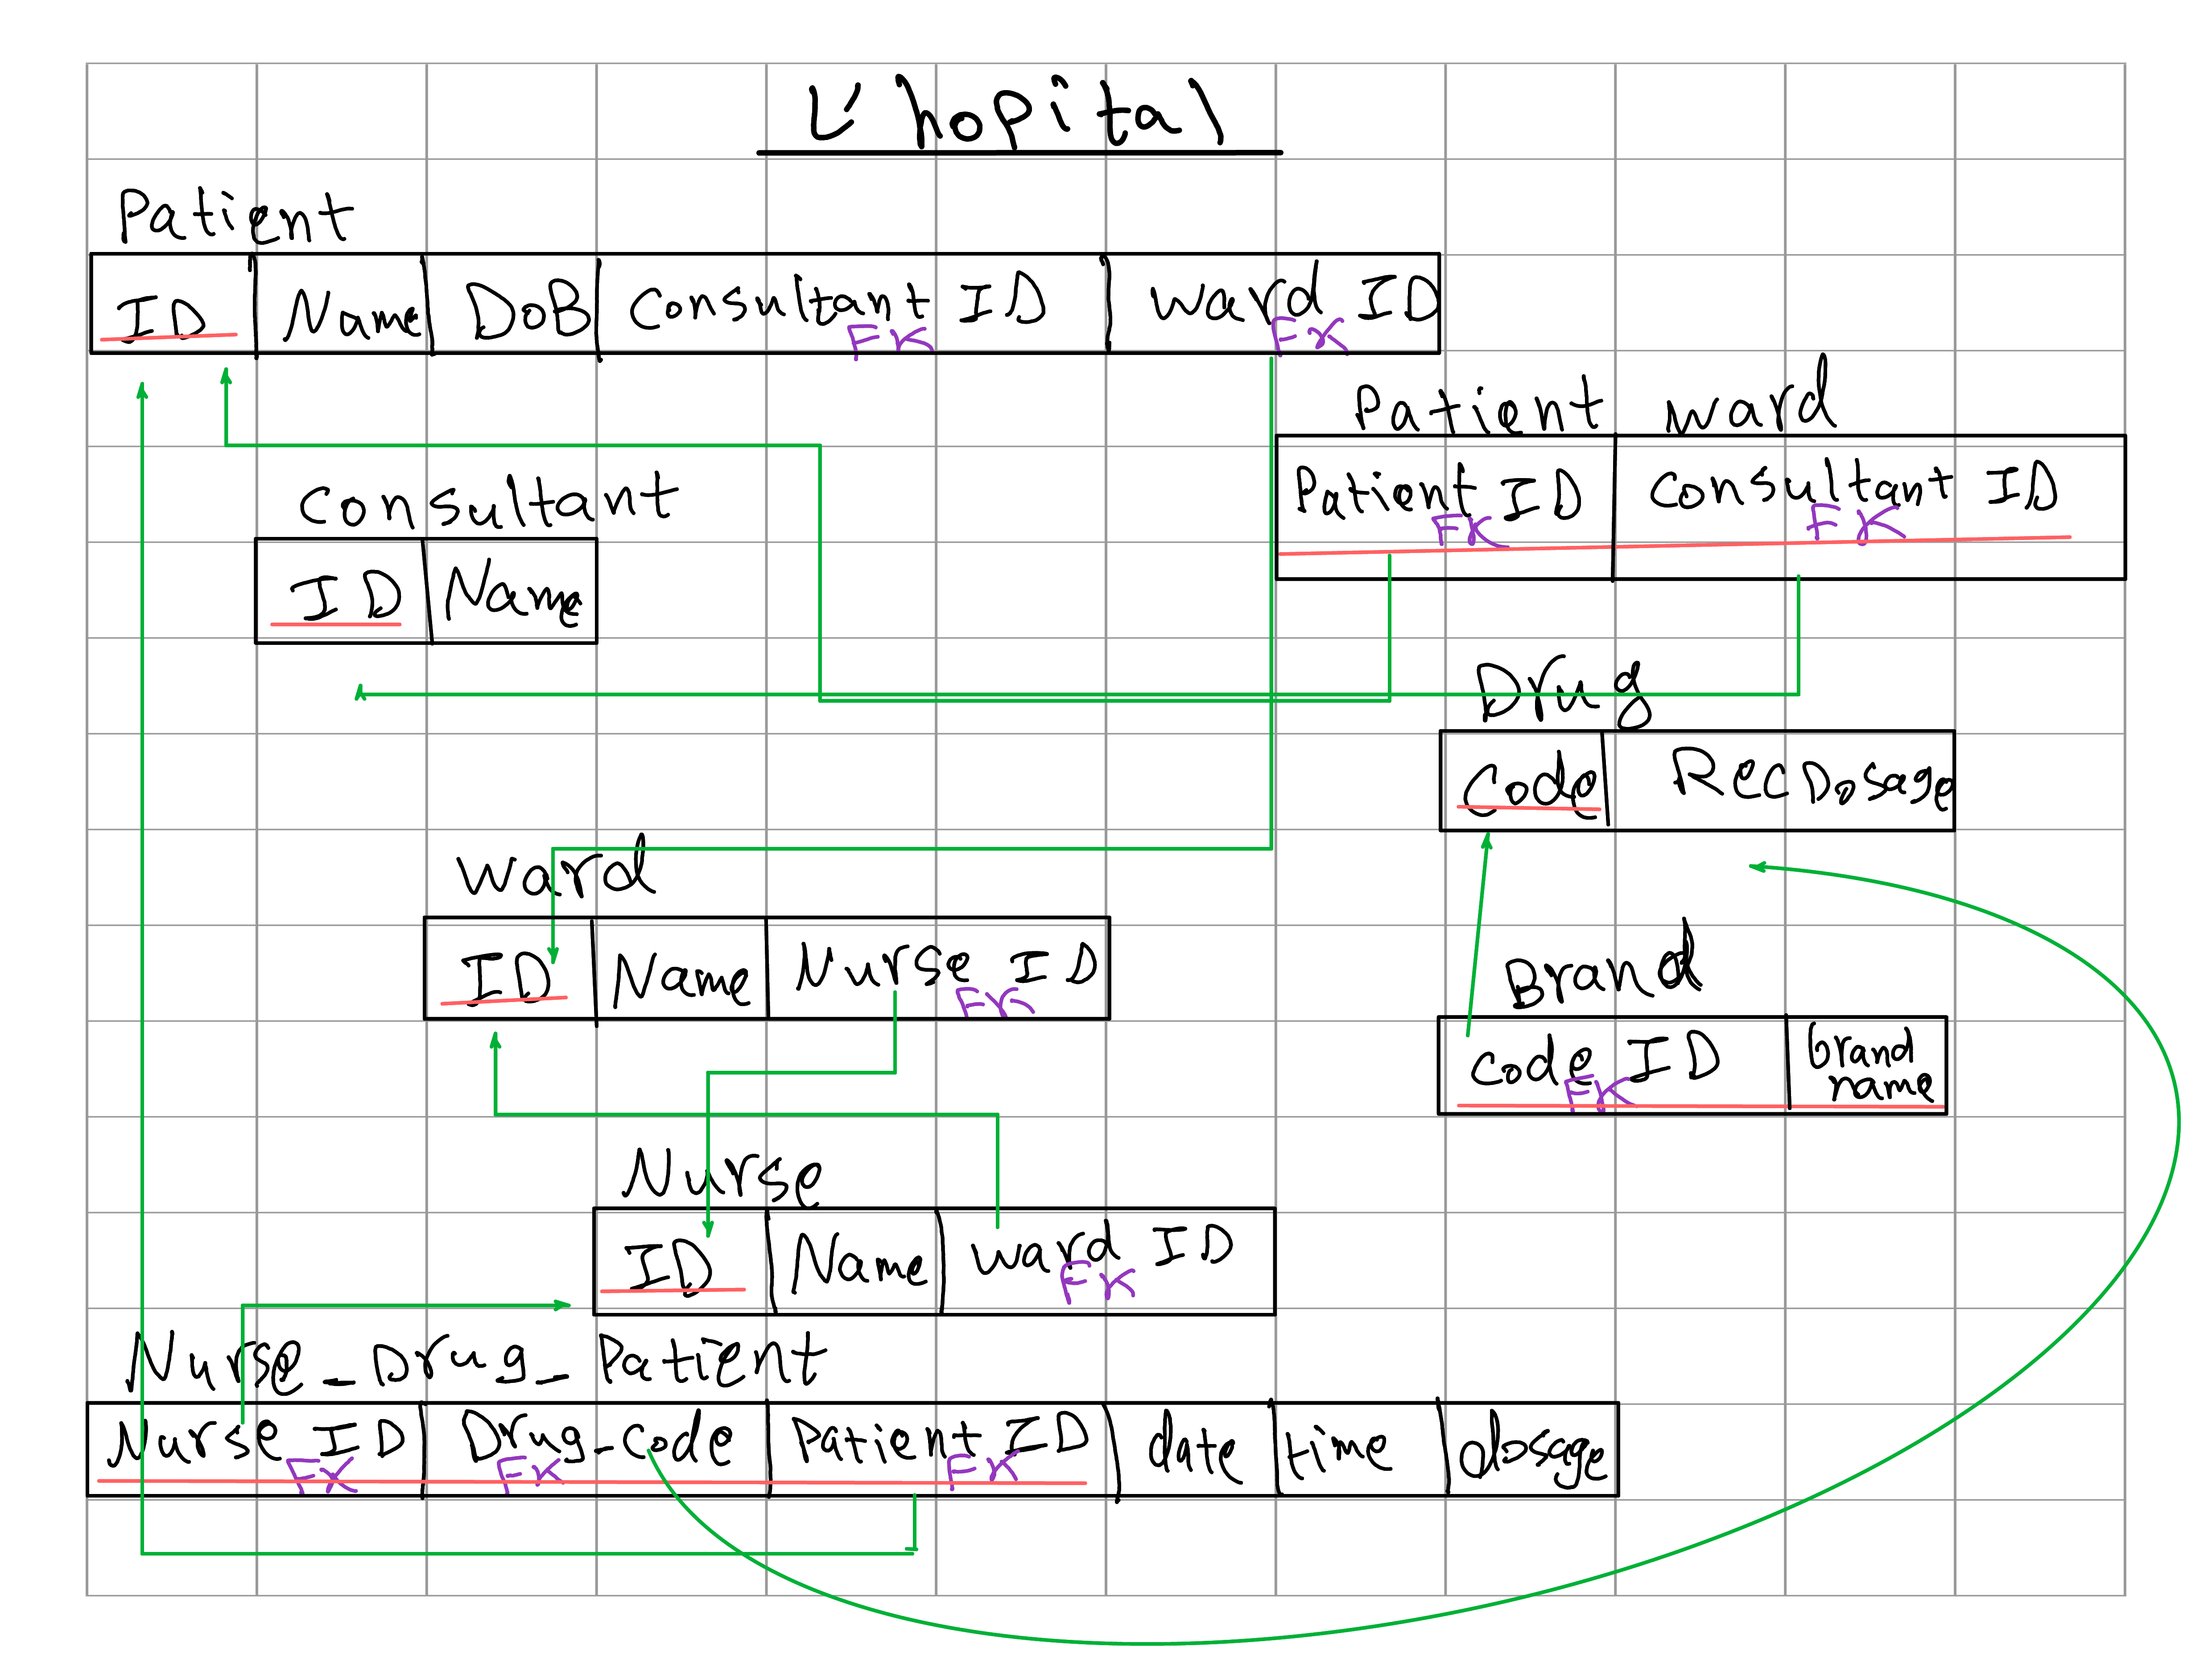 L'hopital
Patient
ID Name DoB Consultant ID ward ID
FK FK
Patient ward
Patient ID Consultant ID
FK FK
Consultant
ID Name
Drug
Code RecDosage
ward
ID Name Nurse ID
FK
Brand
code ID brand name
FK
Nurse
ID Name ward ID
FK
Nurse_Drug_Patient
Nurse ID Drug-code Patient ID date time dosage
FK FK FK